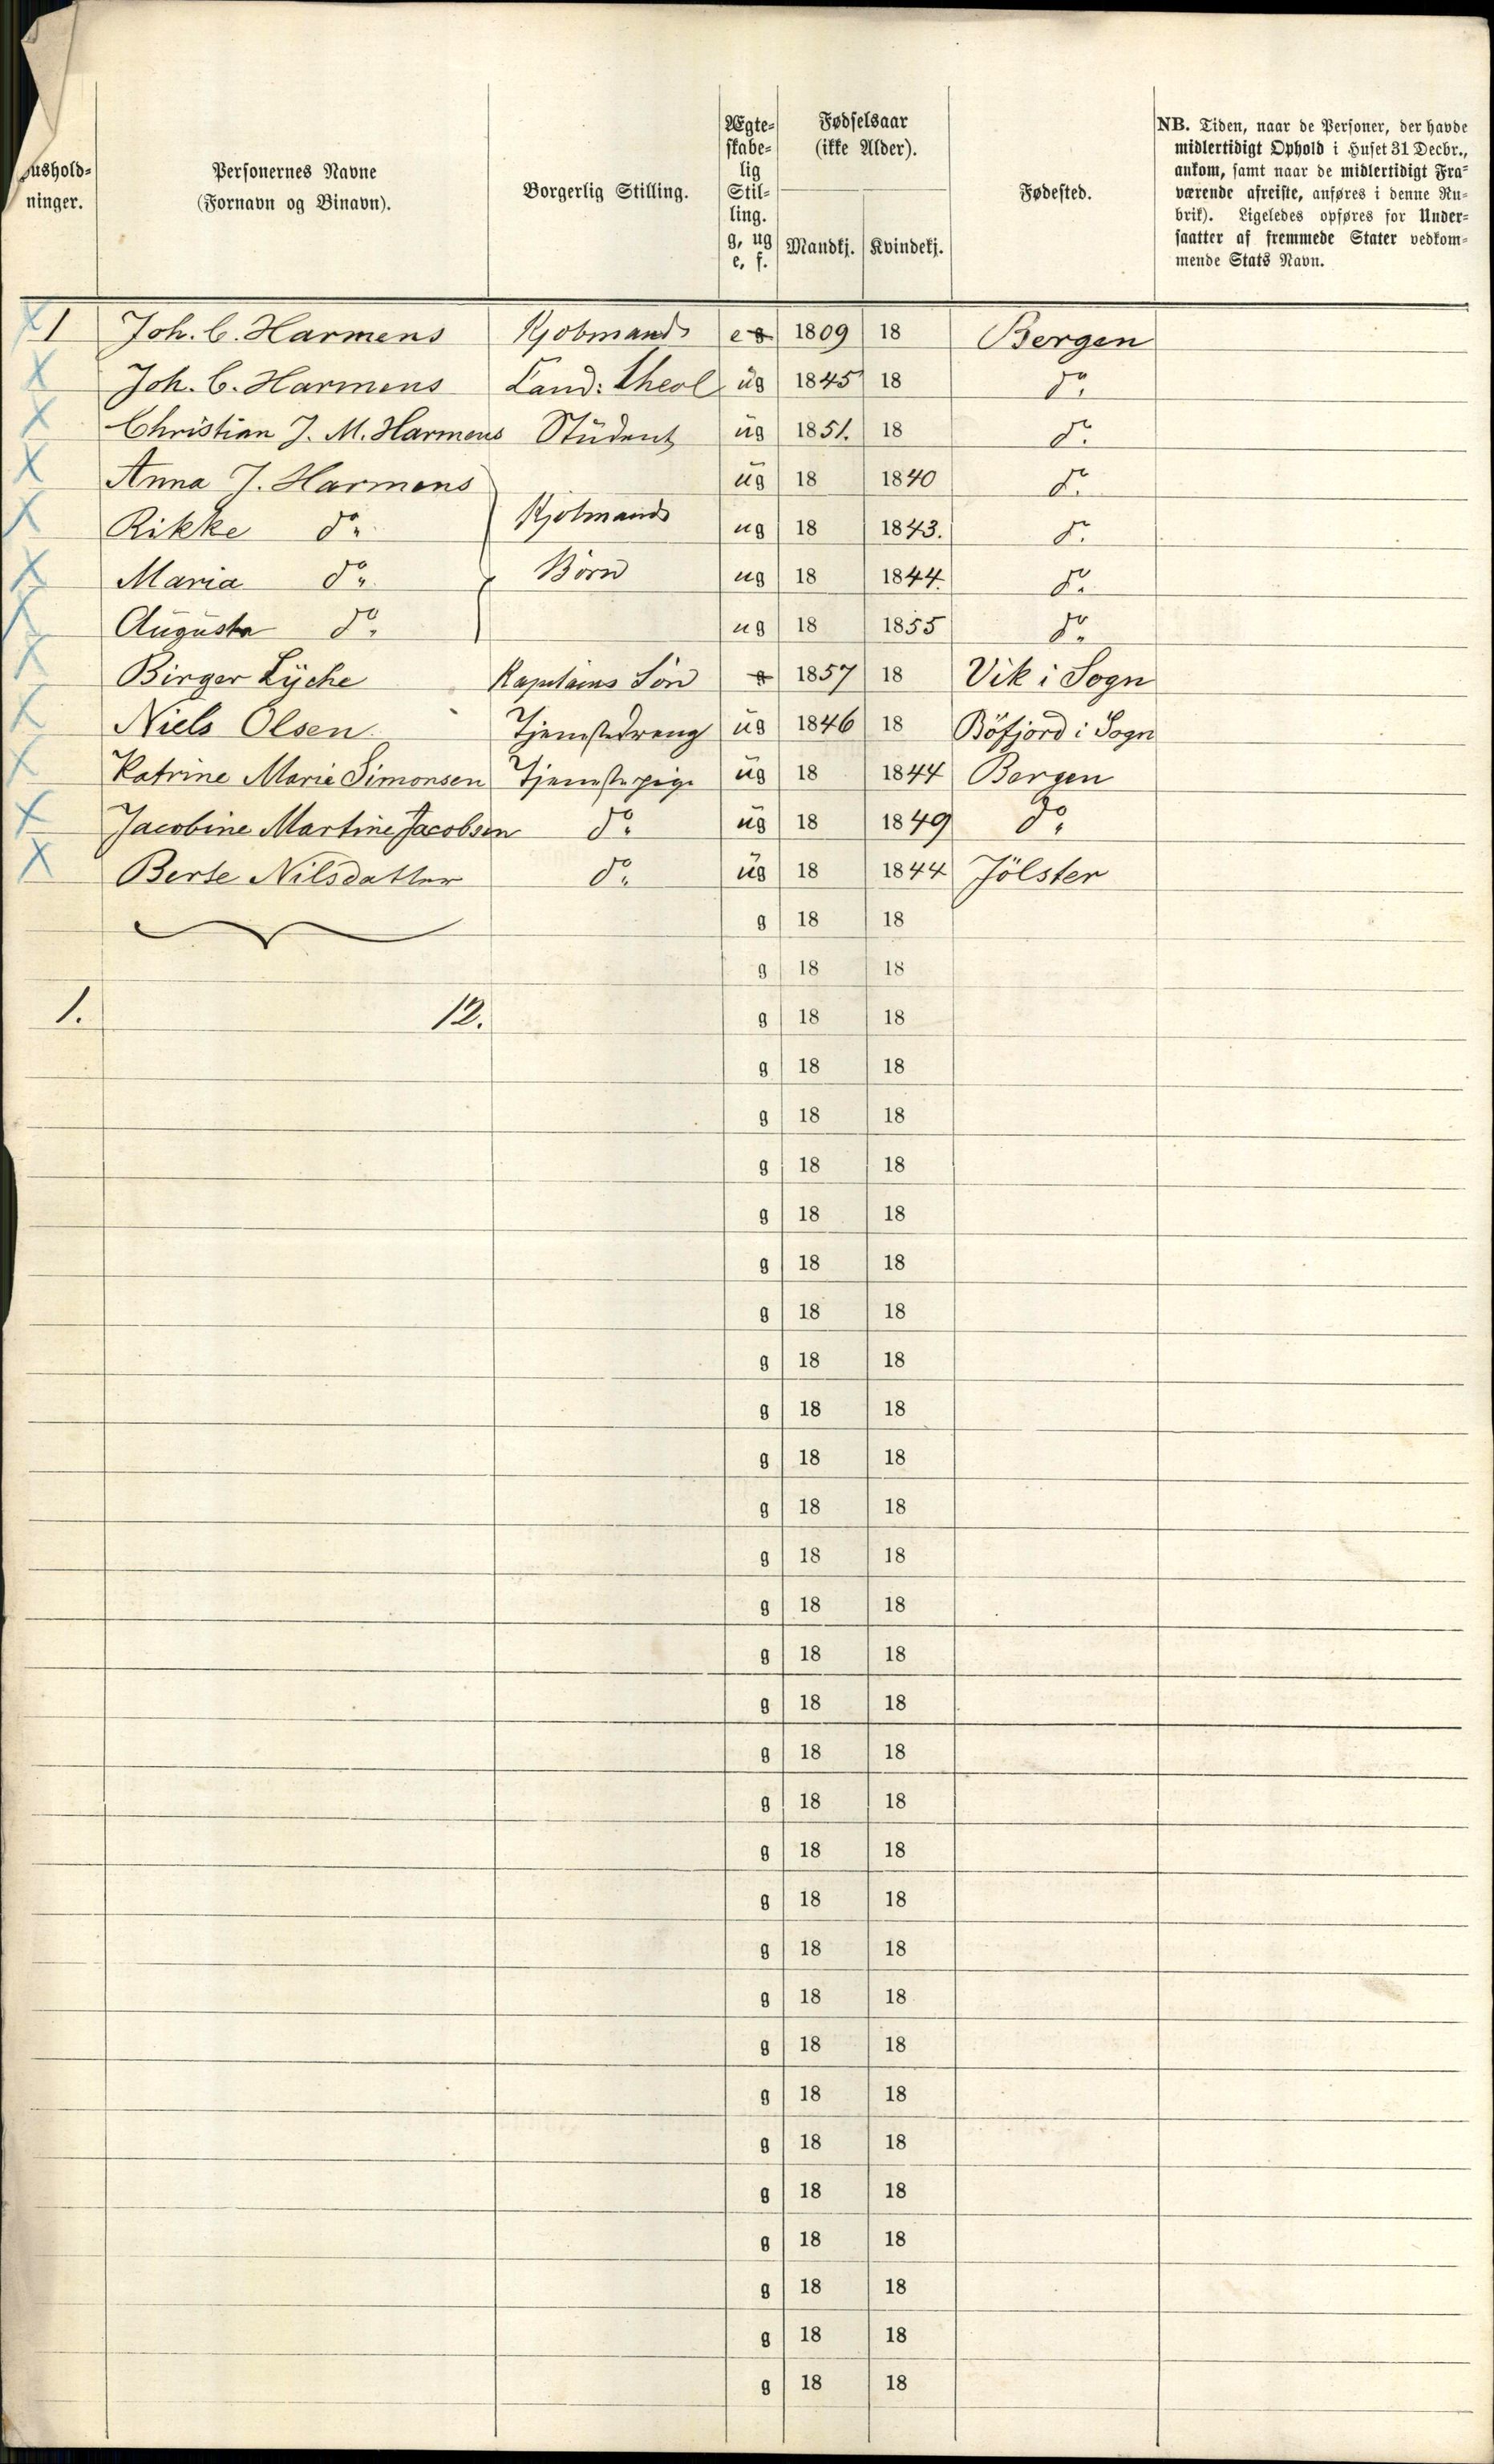 Hushold-
ninger.
Personernes Navne
(Fornavn og Binavn).
Borgerlig Stilling.
Ægte-
skabe-
lig
Stil-
ling.
g, ug
e, f.
Fødselsaar
(ikke Alder).
Mandkj. Kvindekj.
Fødested.
NB. Tiden, naar de Personer, der havde
midlertidigt Ophold i Huset 31 Decbr.,
ankom, samt naar de midlertidigt Fra-
værende afreiste, anføres i denne Ru-
brik). Ligeledes opføres for Under-
saatter af fremmede Stater vedkom-
mende Stats Navn.
X 1 Joh. C. Harmens Kjobmand e g 1809 18 Bergen
X Joh. C. Harmens Cand: theol ug 1845 18 do.
X Christian J. M. Harmens Student ug 1851. 18 do.
X Anna J. Harmens ug 18 1840 do.
X Rikke do. Kjobmands ug 18 1843. do.
X Maria do. Börn ug 18 1844. do.
X Augusta do. ug 18 1855 do.
X Birger Lyche Kapitains Sön g 1857 18 Vik i Sogn
X Niels Olsen Tjenestedreng ug 1846 18 Böfjord i Sogn
X Katrine Marie Simonsen Tjenestepige ug 18 1844 Bergen
X Jacobine Martine Jacobsen do. ug 18 1849 do.
X Berte Nilsdatter do. ug 18 1844 Jölster
g 18 18
g 18 18
1. 12. g 18 18
g 18 18
g 18 18
g 18 18
g 18 18
g 18 18
g 18 18
g 18 18
g 18 18
g 18 18
g 18 18
g 18 18
g 18 18
g 18 18
g 18 18
g 18 18
g 18 18
g 18 18
g 18 18
g 18 18
g 18 18
g 18 18
g 18 18
g 18 18
g 18 18
g 18 18
g 18 18
g 18 18
g 18 18